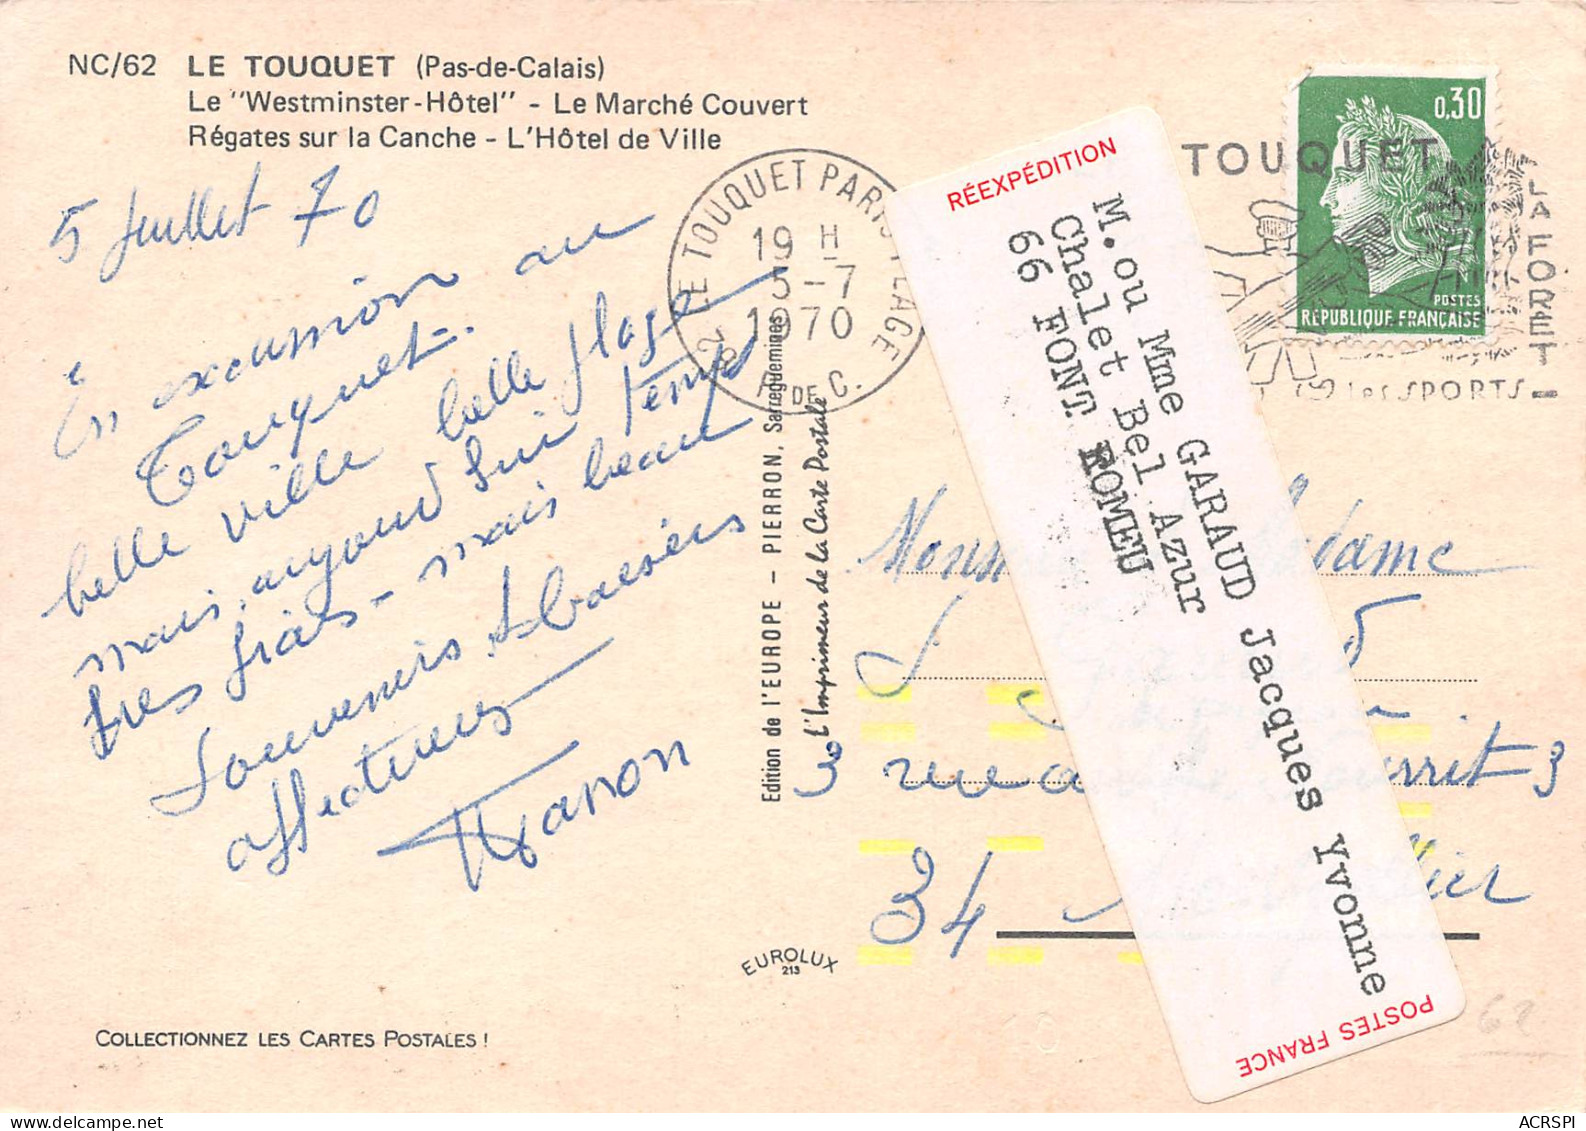 NC/62 LE TOUQUET (Pas-de-Calais)
Le "Westminster-Hôtel" - Le Marché Couvert
Régates sur la Canche - L'Hôtel de Ville
5 Juillet 70
En excursion au
Touquet.
belle ville belle plage
mais aujourd'hui temps
tres frais - mais beau
Souvenirs & baisers
affectueux
Manon
Edition de l'EUROPE - PIERRON, Sarreguemines
L'Imprimeur de la Carte Postale
EUROLUX
213
COLLECTIONNEZ LES CARTES POSTALES !
62 LE TOUQUET PARIS PLAGE
19 H
5-7
1970
P. DE C.
TOUQUET
LA FORET
les SPORTS
0,30
POSTES
RÉPUBLIQUE FRANÇAISE
RÉEXPÉDITION
M.ou Mme GARAUD Jacques Yvonne
Chalet Bel Azur
66 FONT ROMEU
POSTES FRANCE
3 rue
3
34
62
ACRSPI